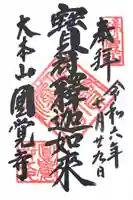 奉拝
令和六年七月廿九日
寶冠釋迦如来
大本山圓覚寺